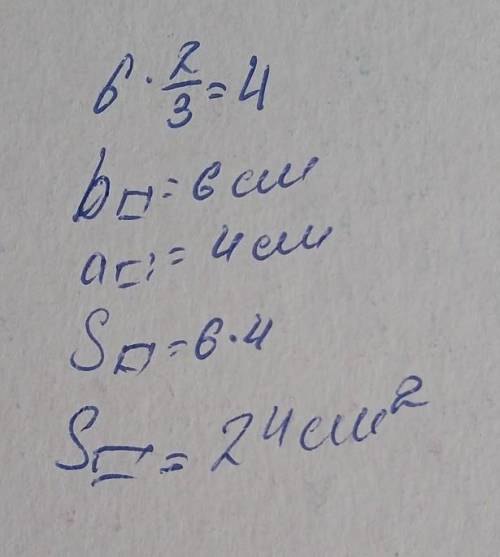 6 · 2/3 = 4
b▭ = 6 см
a▭ = 4 см
S▭ = 6 · 4
S▭ = 24 см²